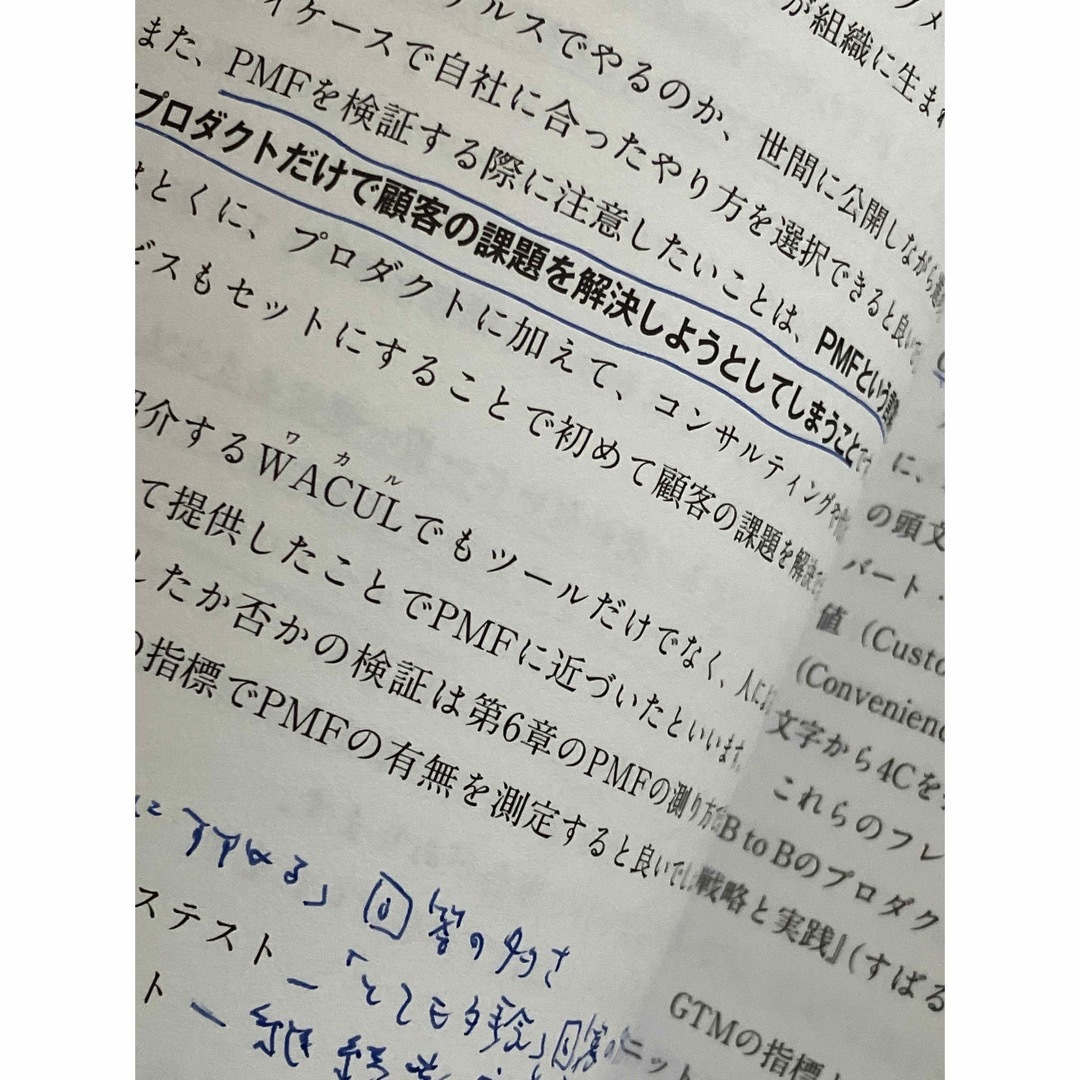 ルスでやるのか、世間に公開しながら
イケースで自社に合ったやり方を選択できると良いで
また、PMFを検証する際に注意したいことは、PMFという
プロダクトだけで顧客の課題を解決しようとしてしまうことです
とくに、プロダクトに加えて、コンサルティングや
ビスもセットにすることで初めて顧客の課題を解決で
介するWACULでもツールだけでなく、人によ
ワカル
て提供したことでPMFに近づいたといいます。
したか否かの検証は第6章のPMFの測り方
の指標でPMFの有無を測定すると良いでし
すすめる」回答の多さ
ステスト ー「とても残念」回答の
ト ー 継続
が組織に生まれ
に、
の頭文
パート・
値（Custo
(Convenienc
文字から4Cを
これらのフレ
B to Bのプロダク
戦略と実践』(すばる
GTMの指標
ニット